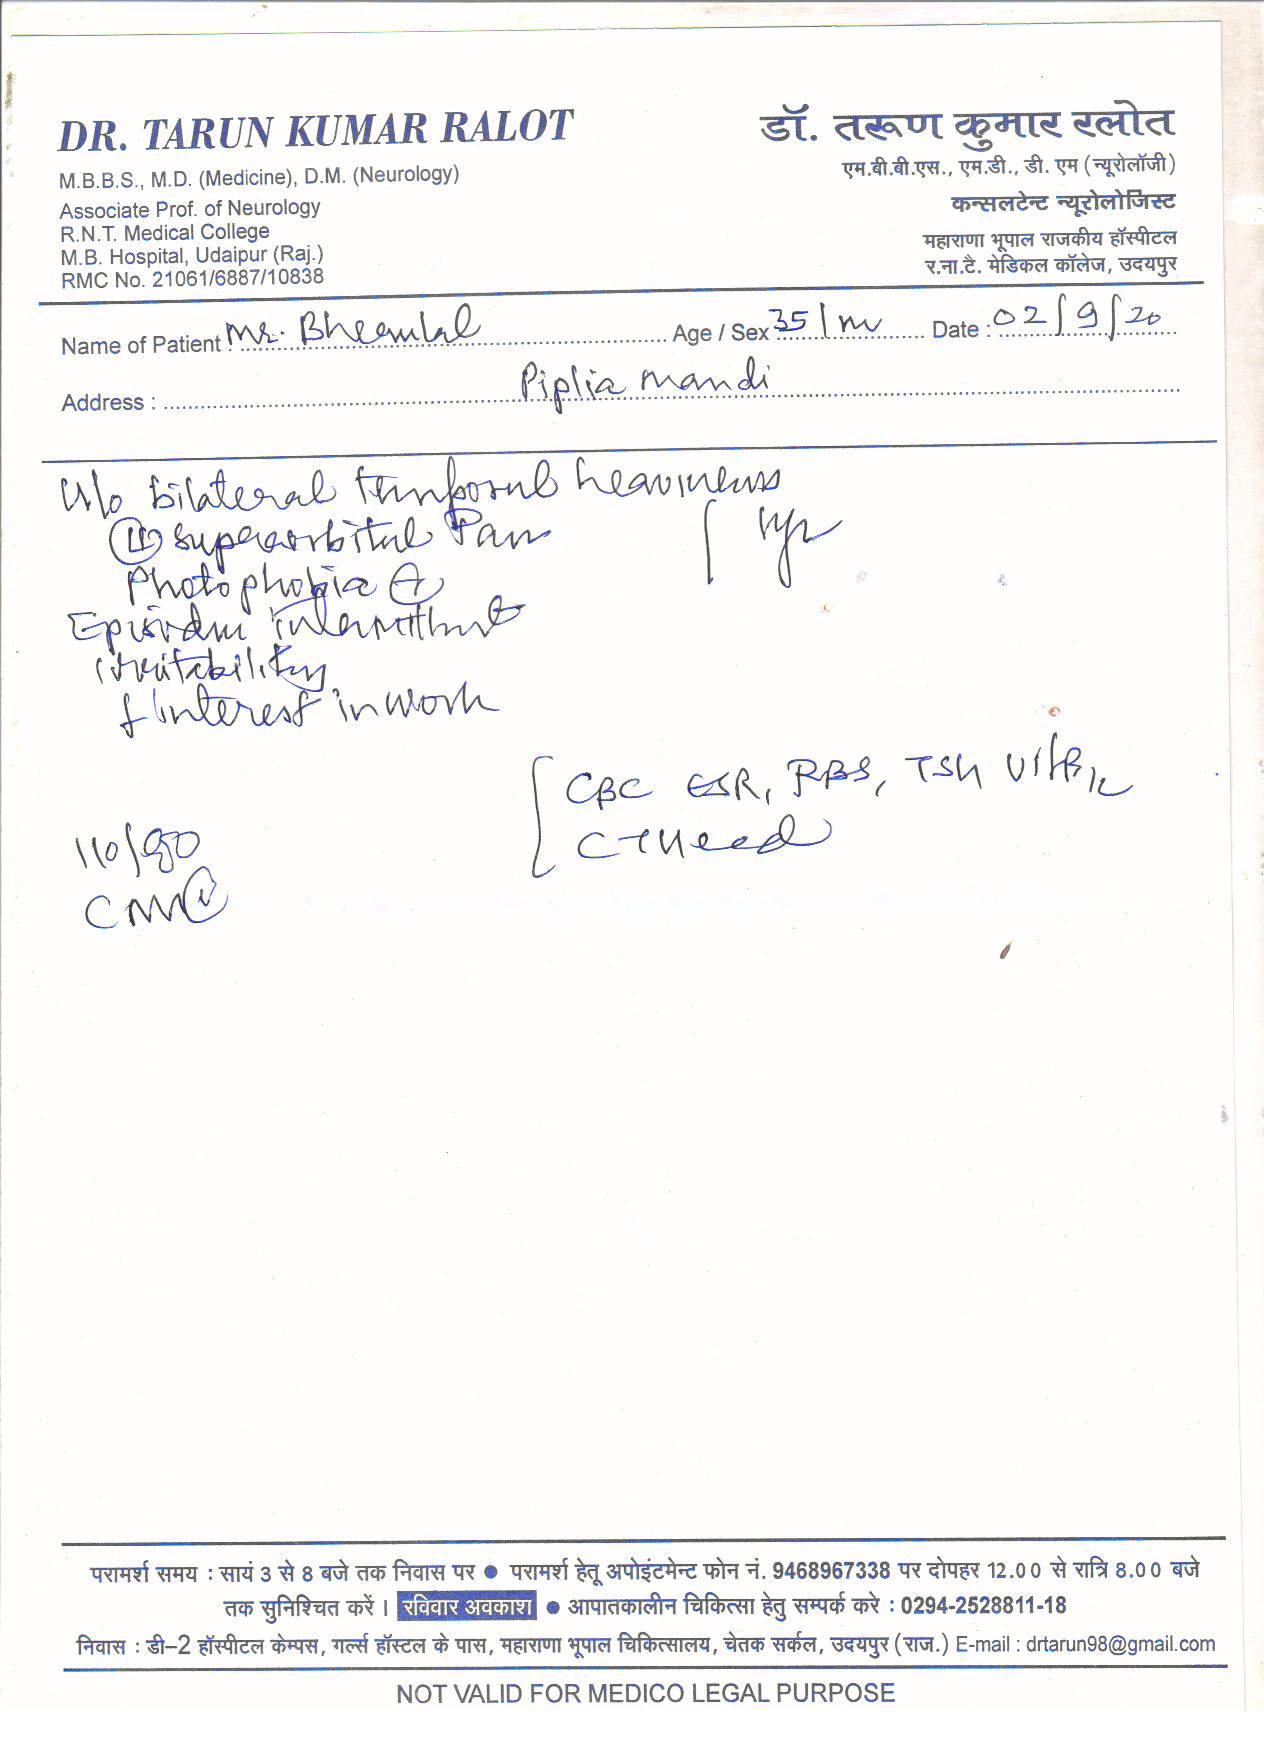 DR. TARUN KUMAR RALOT
M.B.B.S., M.D. (Medicine), D.M. (Neurology)
Associate Prof. of Neurology
R.N.T. Medical College
M.B. Hospital, Udaipur (Raj.)
RMC No. 21061/6887/10838
डॉ. तरूण कुमार रलोत
एम.बी.बी.एस., एम.डी., डी. एम (न्यूरोलॉजी)
कन्सलटेन्ट न्यूरोलोजिस्ट
महाराणा भूपाल राजकीय हॉस्पीटल
र.ना.टै. मेडिकल कॉलेज, उदयपुर
Name of Patient : Mr. Bheemlal Age / Sex 35/m Date : 02/9/20
Address : Piplia mandi
bilateral temporal heaviness
supraorbital Pain 1yr
Photophobia ⊕
intermittent
irritability
↓ interest in work
CBC ESR, RBS, TSH Vit B12
CT Head
110/90
परामर्श समय : सायं 3 से 8 बजे तक निवास पर ● परामर्श हेतू अपोइंटमेन्ट फोन नं. 9468967338 पर दोपहर 12.00 से रात्रि 8.00 बजे
तक सुनिश्चित करें । रविवार अवकाश ● आपातकालीन चिकित्सा हेतु सम्पर्क करे : 0294-2528811-18
निवास : डी–2 हॉस्पीटल केम्पस, गर्ल्स हॉस्टल के पास, महाराणा भूपाल चिकित्सालय, चेतक सर्कल, उदयपुर (राज.) E-mail : drtarun98@gmail.com
NOT VALID FOR MEDICO LEGAL PURPOSE